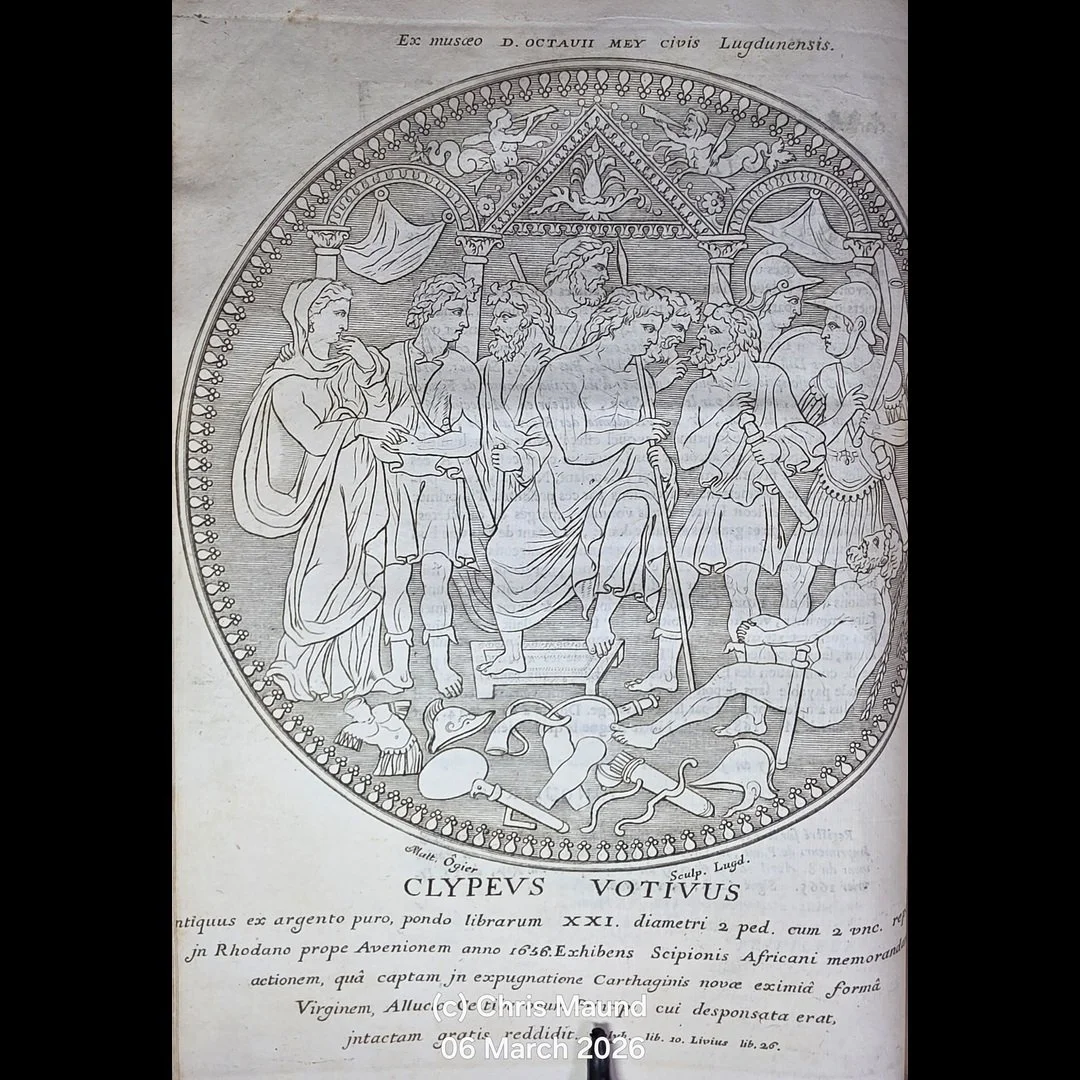 Ex musæo D. OCTAVII MEY civis Lugdunensis.
Matt. Ogier
Sculp. Lugd.
CLYPEVS VOTIVUS
ntiquus ex argento puro, pondo librarum XXI. diametri 2 ped. cum 2 vnc. rep
jn Rhodano prope Avenionem anno 1656. Exhibens Scipionis Africani memorand
actionem, quâ captam jn expugnatione Carthaginis novæ eximiâ formâ
Virginem, Alluc cui desponsata erat,
jntactam gratis reddidit. lib. 10. Livius lib. 26.
(c) Chris Maund
06 March 2026